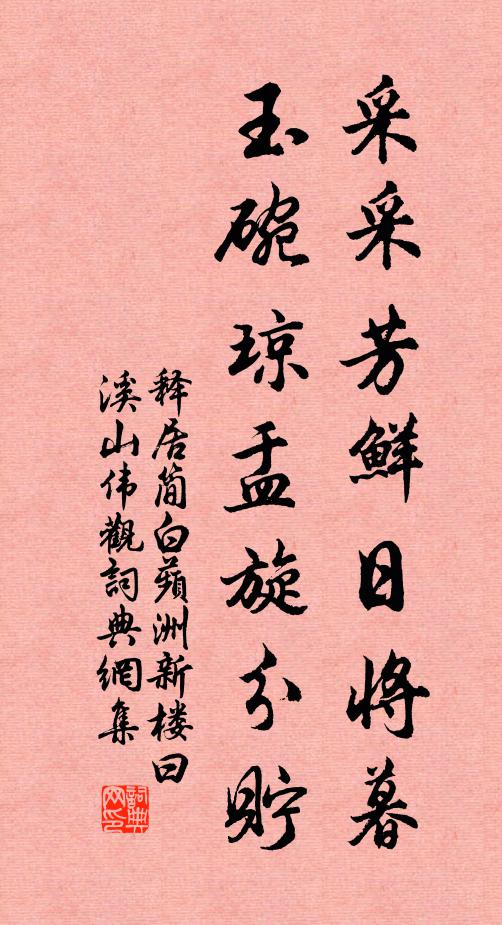 采采芳鮮日将暮
玉碗琼盂旋分貯
释居简白蘋洲新楼曰
溪山伟觀詞典網集
詞典
网印